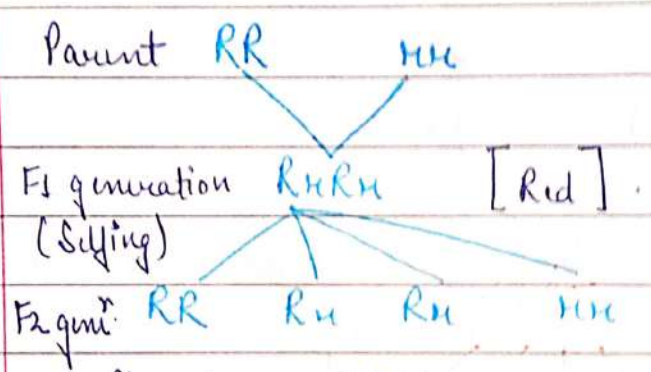 Parent RR rr
F1 generation RrRr [Red].
(Selfing)
F2 genr. RR Rr Rr rr